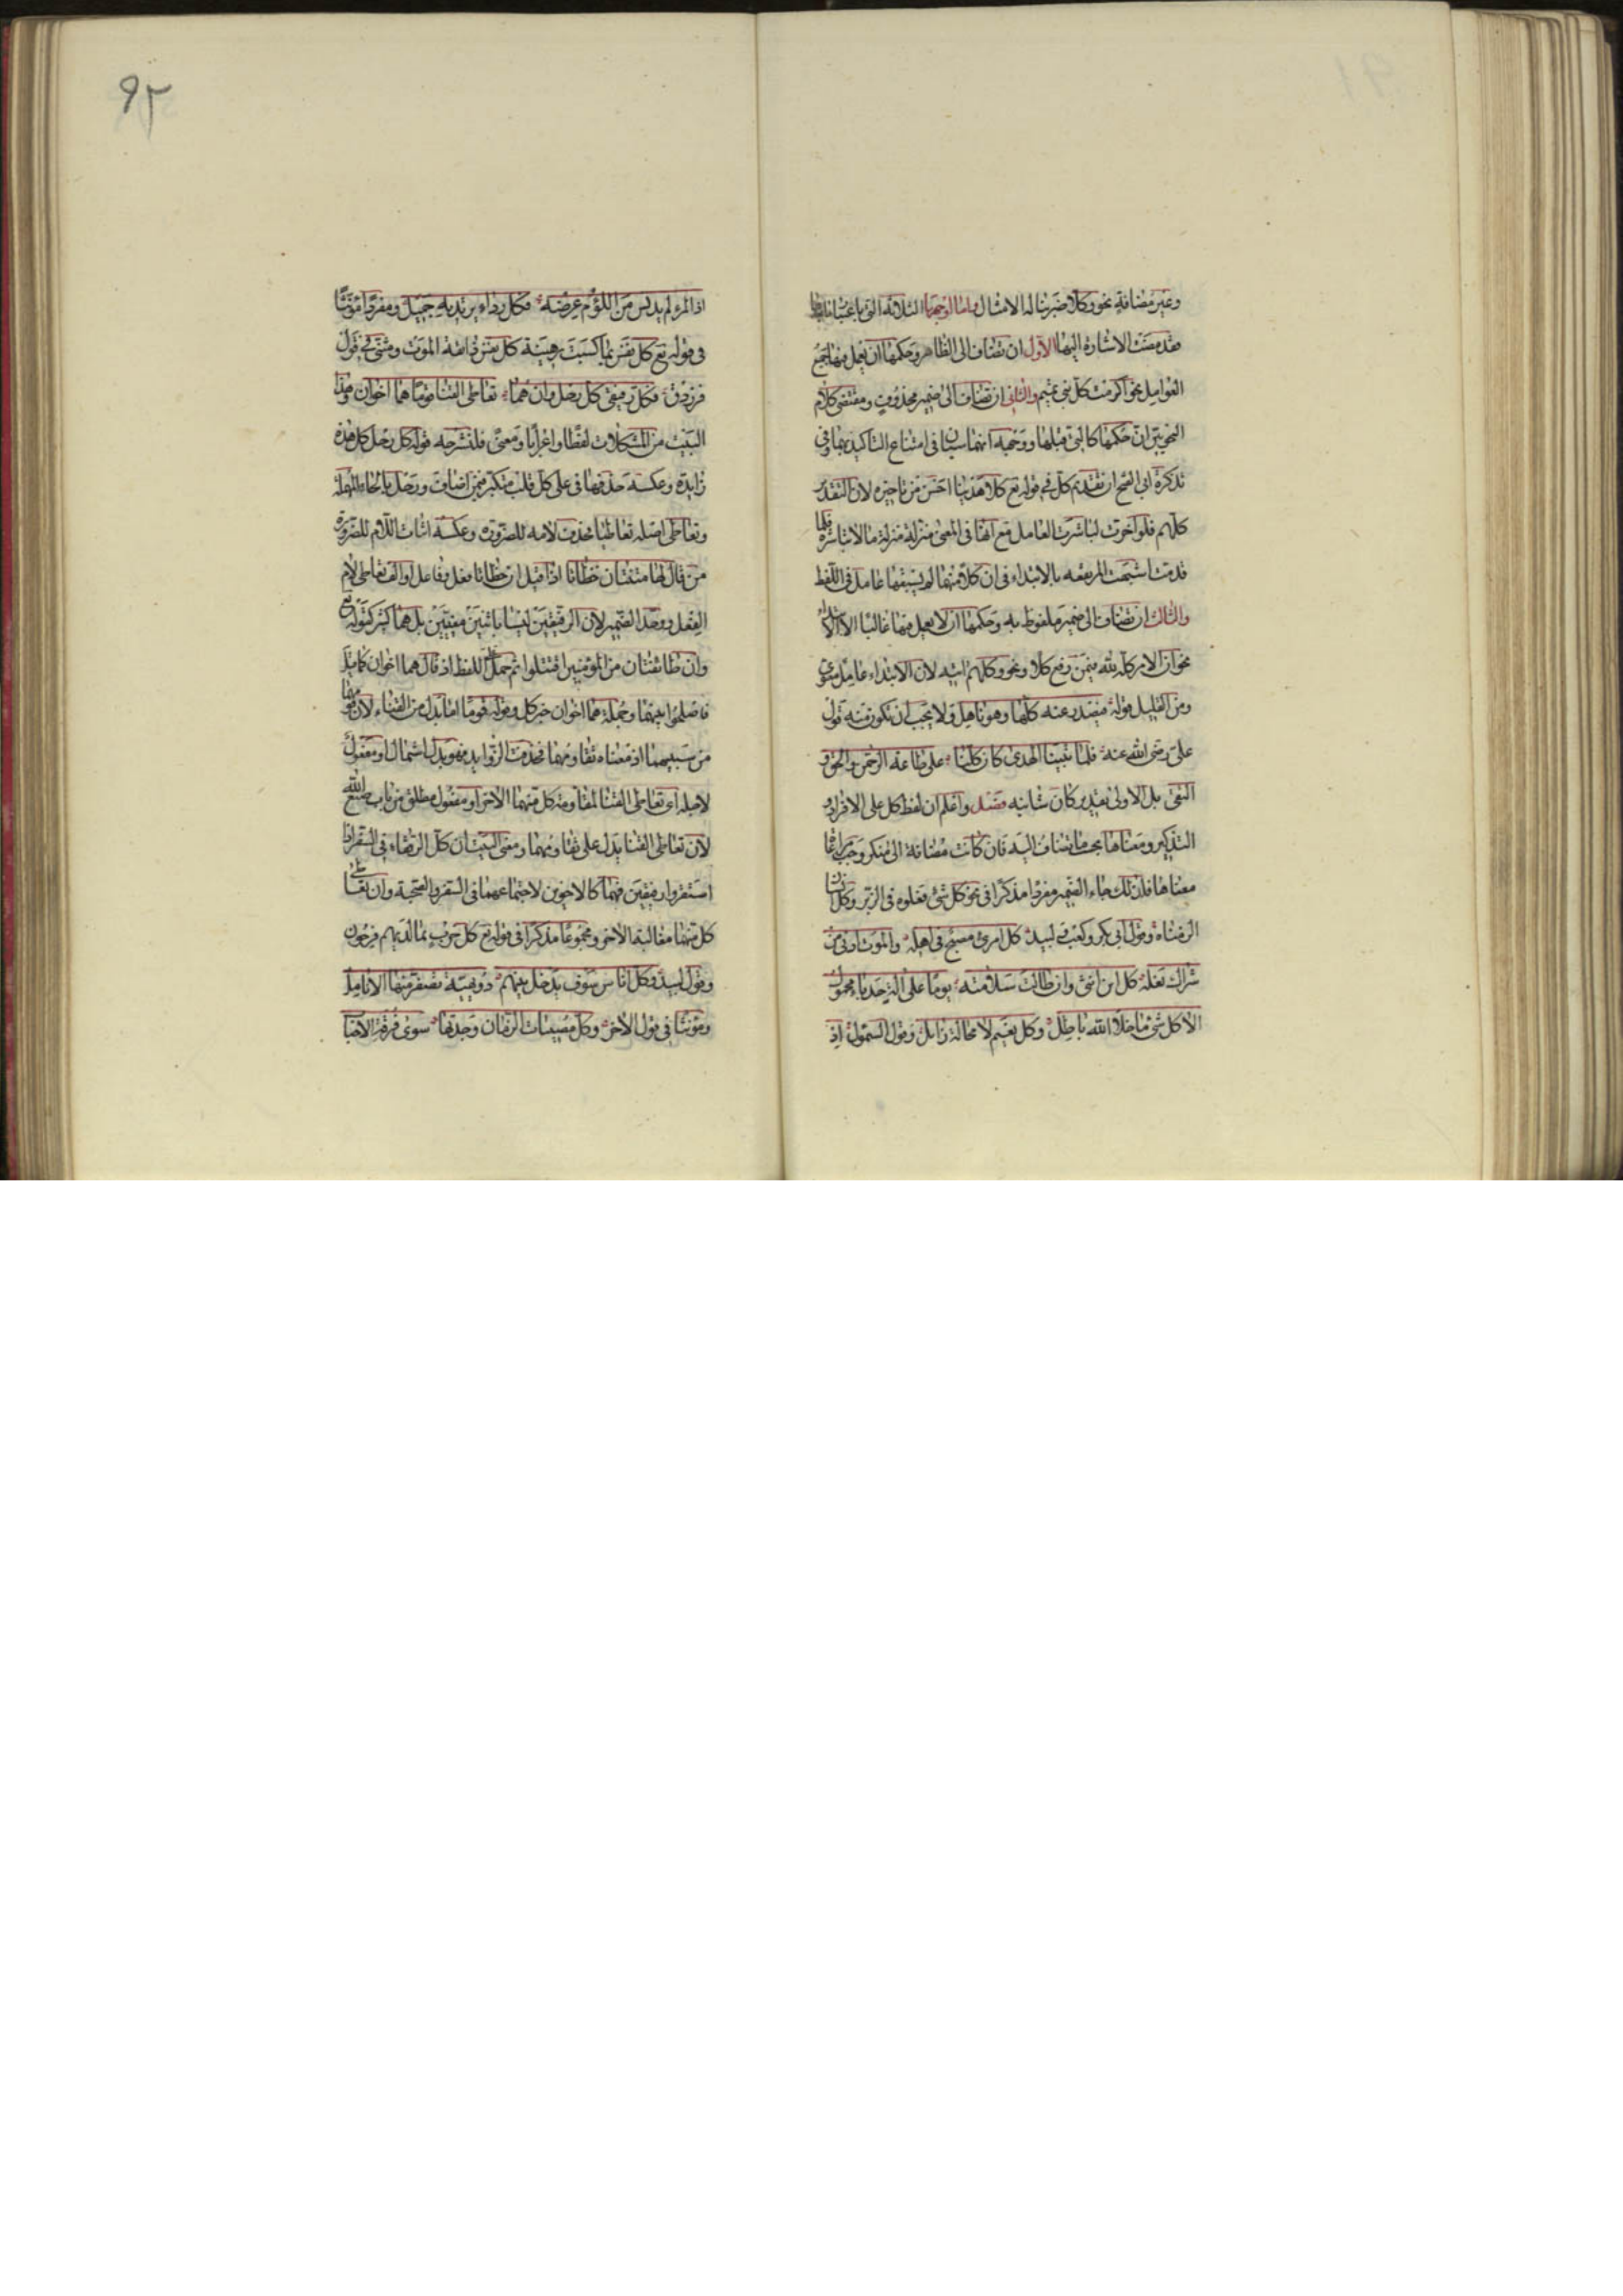 وغير مضافة نحو وكلا ضربنا له الامثال واما اوجهها الثلاثة التي باعتبار ما بعدها
فقد مضت الاشارة اليها الاول ان تضاف الى الظاهر وحكمها ان يعمل فيها جميع
العوامل نحو اكرمت كل بني تميم والثاني ان تضاف الى ضمير محذوف ومقتضى كلام
النحويين ان حكمها كالتي قبلها ووجهه انهما سيان في امتناع التاكيد بهما وفي
تذكرة ابي الفتح ان تقديم كل في قوله تع كلا هدينا احسن من تاخيره لان التقدير
كلهم فلو اخرت لباشرت العامل مع انها في المعنى منزلة منزلة ما لا يباشره فلما
قدمت اشبهت المرتفعه بالابتداء في ان كلا منهما لم يسبقها عامل في اللفظ
والثالث ان تضاف الى ضمير ملفوظ به وحكمها ان لا يعمل فيها غالبا الا الابتداء
نحو ان الامر كله لله فيمن رفع كلا ونحو وكلهم اتيه لان الابتداء عامل معنوي
ومن القليل قوله فيصدر عنه كلها وهو ناهل ولا يجب ان تكون منه قول
علي رضي الله عنه فلما تبينا الهدى كان كلنا على طاعة الرحمن والحق و
التقى بل الاولى تقدير كان شانيه فصل واعلم ان لفظ كل على الافراد و
التذكير ومعناها بحسب ما تضاف اليه فان كانت مضافة الى منكر وجب مراعاة
معناها فلذلك جاء الضمير مفردا مذكرا في نحو كل شئ فعلوه في الزبر وكل انسان
الزمناه وقول ابي بكر وكعب ولبيد كل امرئ مصبح في اهله والموت ادنى من
شراك نعله كل ابن انثى وان طالت سلامته يوما على الة حدباء محمول
الا كل شئ ما خلا الله باطل وكل نعيم لا محالة زايل وقول السموال اذ
٩٢
اذا المرء لم يدنس من اللؤم عرضه فكل رداء يرتديه جميل ومفردا مؤنثا
في قوله تع كل نفس بما كسبت رهينة كل نفس ذائقة الموت ومثنى في قول
فرزدق وكل رفيقي كل رحل وان هما تعاطى القنا قوما هما اخوان وهذا
البيت من المشكلات لفظا واعرابا ومعنى فلنشرحه قوله كل رحل كل هذه
زايدة وعكسه حذفها في على كل قلب متكبر فيمن اضاف ورحل بالحاء المهملة
وتعاطى اصله تعاطيا فحذفت لامه للضرورة وعكسه اثبات اللام للضرورة
من قال لها متنتان خظاتا اذا قيل ان خظاتا فعل وفاعل او الف تعاطى لام
الفعل ووحد الضمير لان الرفيقين ليسا باثنين معينين بل هما كثير كقوله تع
وان طائفتان من المؤمنين اقتتلوا ثم حمل على اللفظ اذ قال هما اخوان كما قيل
فاصلحوا بينهما وجملة هما اخوان خبر كل وقوله قوما اما بدل من القنا لان قومهما
من سببهما اذ معناه تقاومهما فحذفت الزوايد فهو بدل اشتمال او مفعول
لاجله اي تعاطى القنا لمقاومة كل منهما الاخر او مفعول مطلق من باب صنع الله
لان تعاطى القنا يدل على تقاومهما ومعنى البيت ان كل الرفقاء في السفر اذا
استقروا رفيقين فهما كالاخوين لاجتماعهما في السفر والصحبة وان تعاطى
كل منهما مغالبة الاخر ومجموعا مذكرا في قوله تع كل حزب بما لديهم فرحون
وقول لبيد وكل اناس سوف يدخل بينهم دويهية تصفر منها الانامل
ومؤنثا في قول الاخر وكل مصيبات الزمان وجدتها سوى فرقة الاحباب